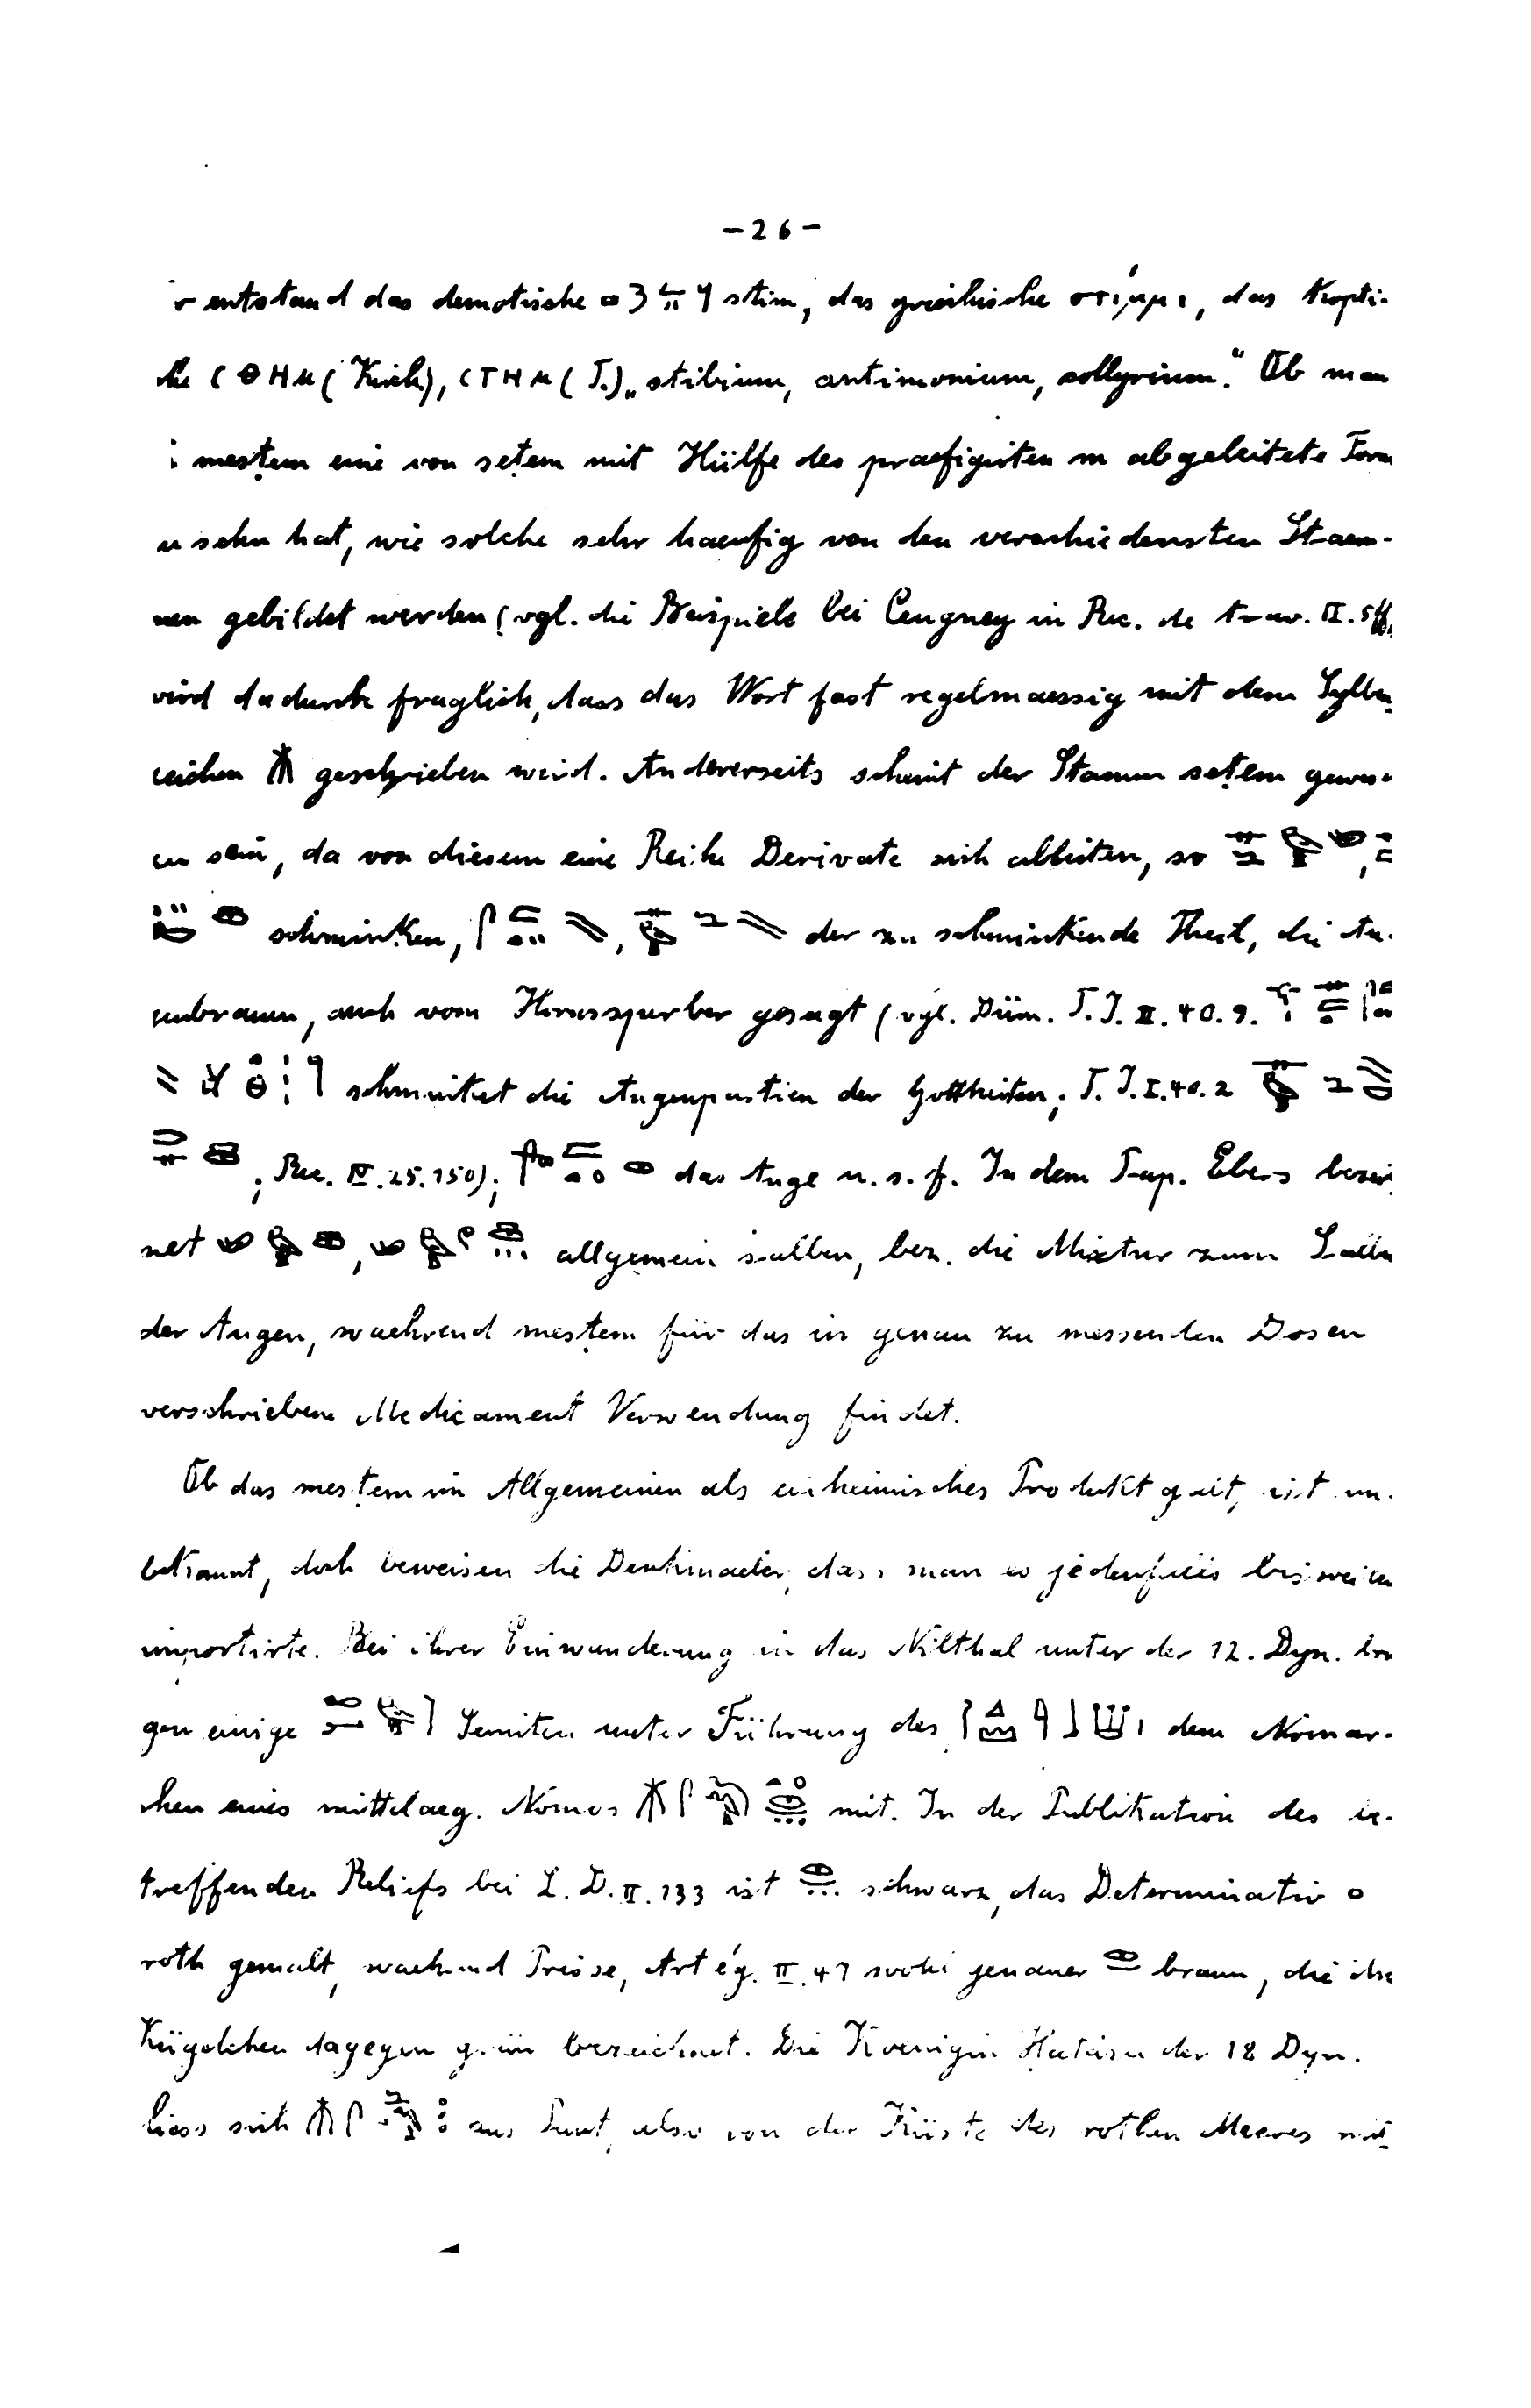 - 26 -
r entstand das demotische stim, das griechische στίμμι, das Kopti-
che CΘHM (Kirch), CTHM (T.) „stibium, antimonium, collyrium." Ob man
mesṭem eine von seṭem mit Hülfe des praefigirten m abgeleitete Form
u sehn hat, wie solche sehr haeufig von den verschiedensten Staem-
men gebildet werden (vgl. die Beispiele bei Ceugney in Rec. de trav. II. sff,
wird dadurch fraglich, dass das Wort fast regelmaessig mit dem Sylben
zeichen 𓄟 geschrieben wird. Andererseits scheint der Stamm seṭem gewes-
en sein, da von diesem eine Reihe Derivate sich ableiten, so
schminken, der zu schminkende Theil, die Au-
genbrauen, auch vom Horussperber gesagt (vgl. Düm. T. I. II. 40. 9.
schminket die Augenpartien der Gottheiten; T. I. I. 40. 2
; Rec. IV. 25. 150); das Auge u. s. f. In dem Pap. Ebers bezeich
net allgemein salben, bez. die Mixtur zum Salben
der Augen, waehrend mesṭem für das in genau zu messenden Dosen
verschriebene Medicament Verwendung findet.
Ob das mesṭem im Allgemeinen als einheimisches Produkt galt, ist un-
bekannt, doch beweisen die Denkmaeler, dass man es jedenfalls bisweilen
importirte. Bei ihrer Einwanderung in das Nilthal unter der 12. Dyn. bra
gen einige Semiten unter Führung des dem Nomar-
chen eines mittelaeg. Nomos mit. In der Publikation des be-
treffenden Reliefs bei L. D. II. 133 ist schwarz, das Determinativ o
roth gemalt, waehrend Prisse, Art ég. II. 47 wohl genauer braun, die drei
Kügelchen dagegen grün bezeichnet. Die Koenigin Hatasu der 18 Dyn.
liess sich aus Punt, also von der Küste des rothen Meeres mit